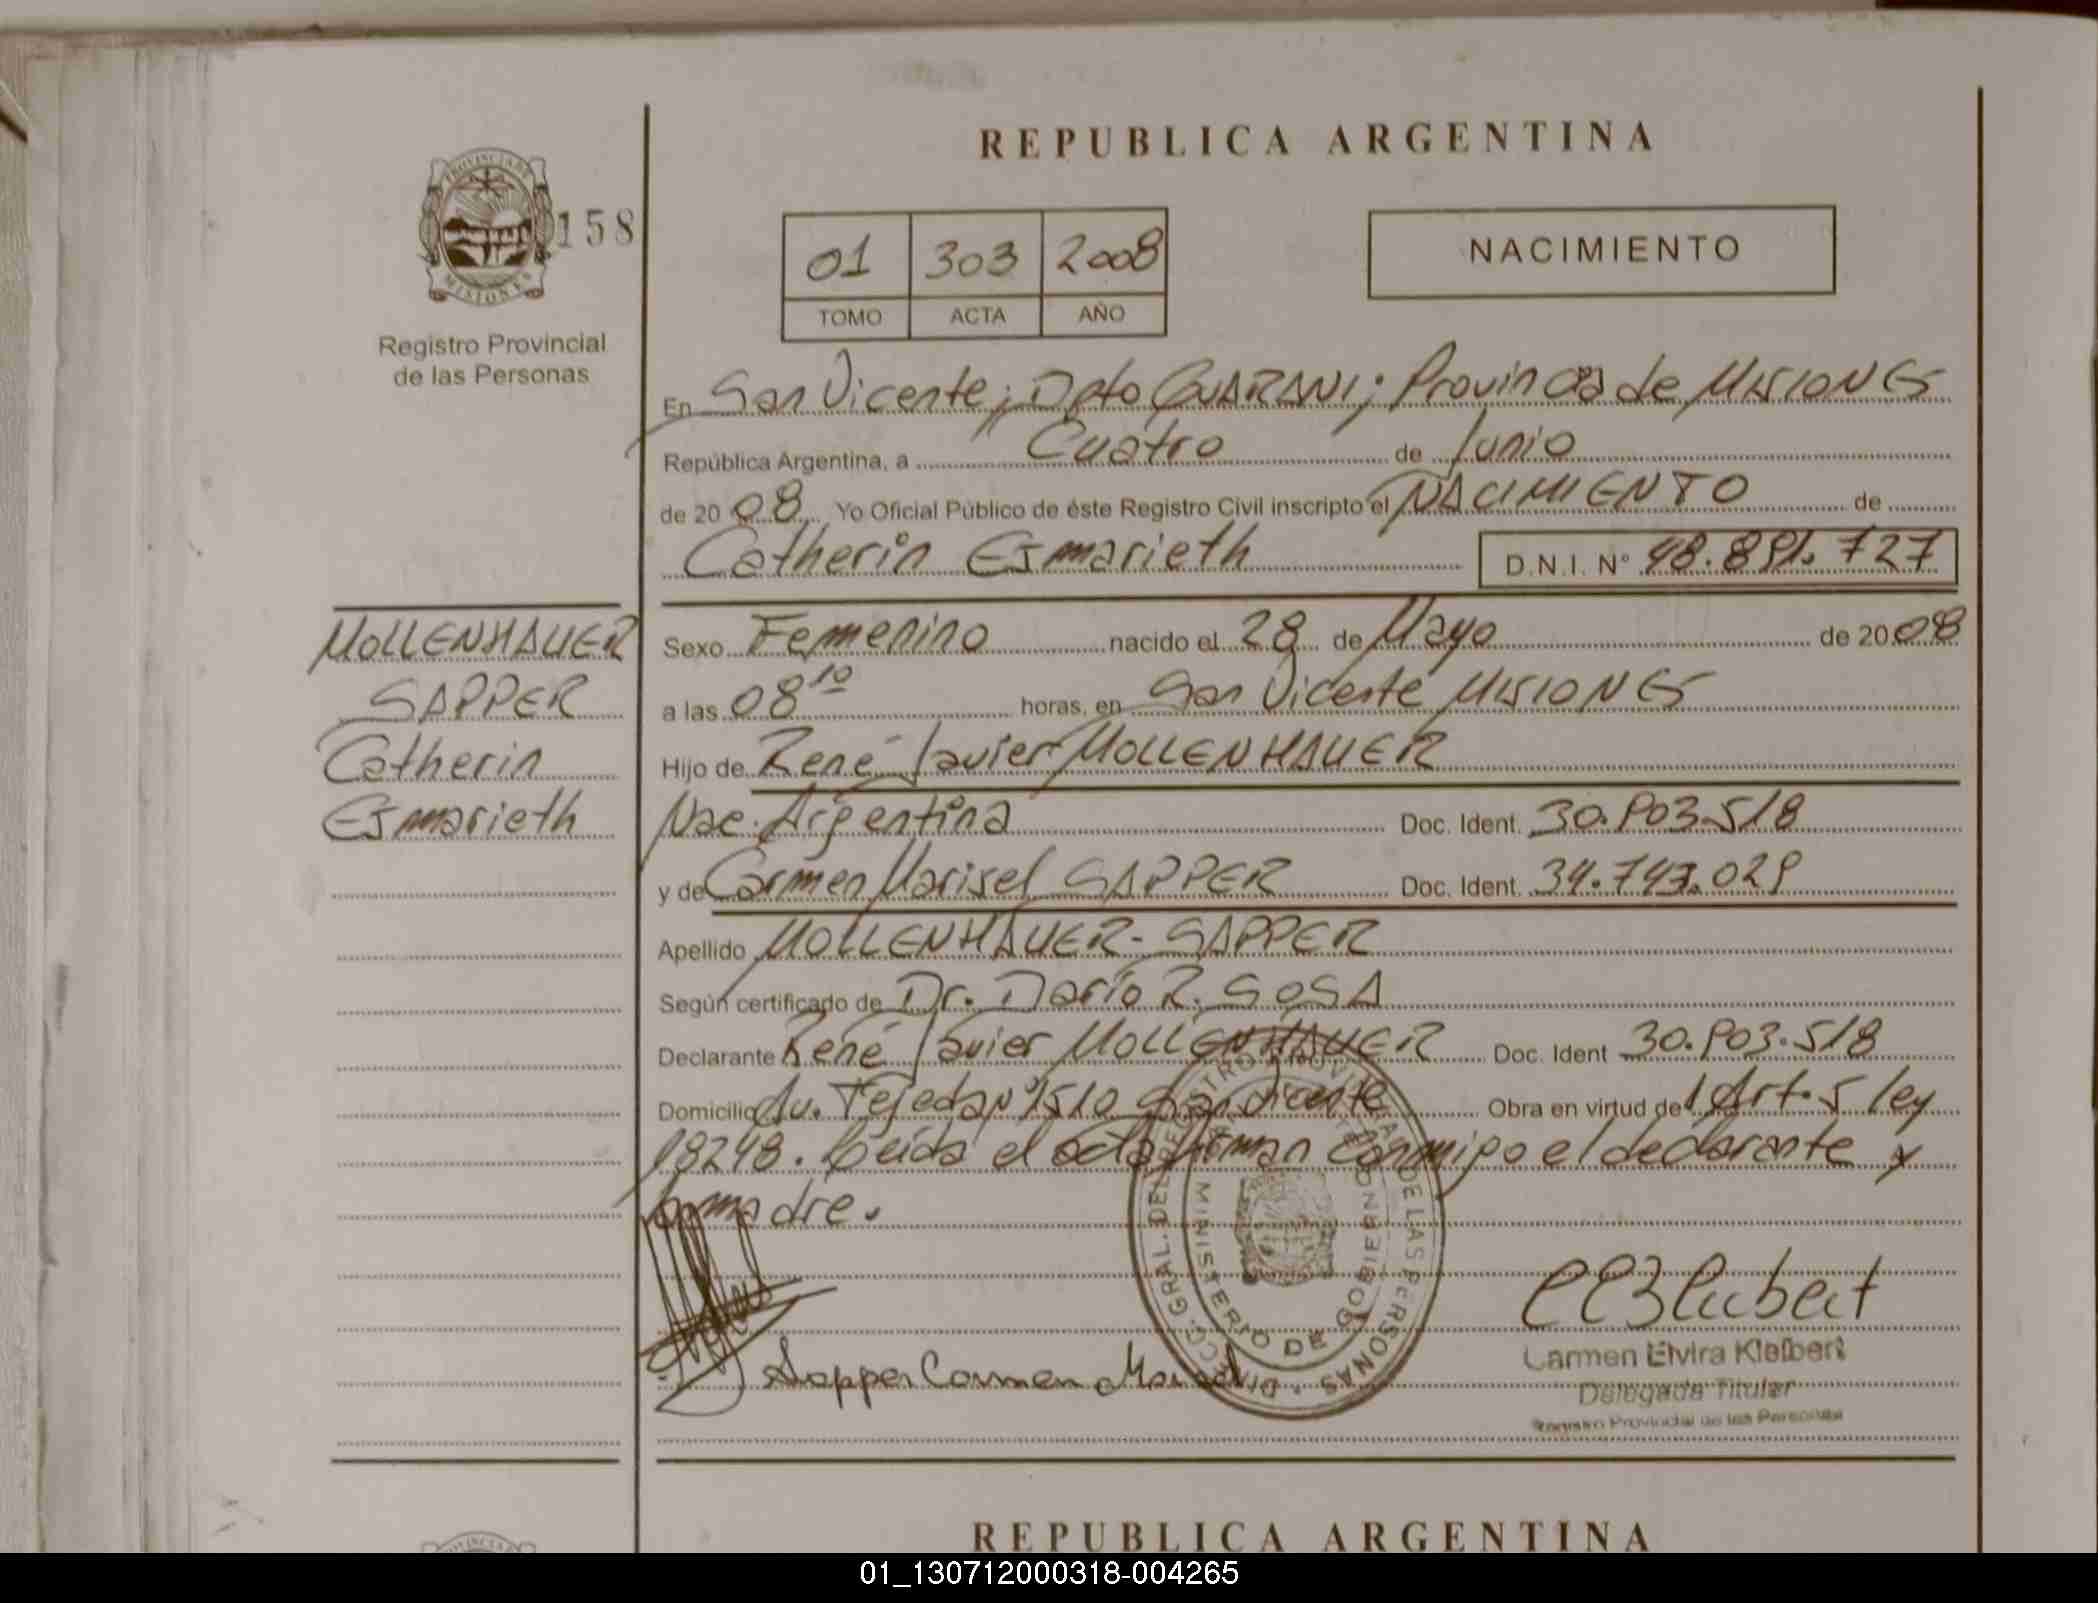 REPUBLICA ARGENTINA
PROVINCIA DE
MISIONES
158
Registro Provincial
de las Personas
01 303 2008
TOMO ACTA AÑO
NACIMIENTO
En San Vicente; Dpto GUARANI; Provincia de MISIONES
República Argentina, a Cuatro de Junio
de 2008 Yo Oficial Público de éste Registro Civil inscripto el NACIMIENTO de
Catherin Esmarieth D.N.I. Nº 48.891.727
MOLLENHAUER
SAPPER
Catherin
Esmarieth
Sexo Femenino nacido el 28 de Mayo de 2008
a las 08 10 horas, en San Vicente MISIONES
Hijo de René Javier MOLLENHAUER
Nac. Argentina Doc. Ident. 30.903.518
y de Carmen Marisel SAPPER Doc. Ident. 34.743.029
Apellido MOLLENHAUER-SAPPER
Según certificado de Dr. Darío R. SOSA
Declarante René Javier MOLLENHAUER Doc. Ident 30.903.518
Domicilio Av. Tejeda Nº1510 San Vicente Obra en virtud del Art. 5 ley
18248. Leída el acta firman conmigo el declarante y
la madre.
DIRECC. GRAL. DEL REGISTRO PROVINCIAL DE LAS PERSONAS
MINISTERIO DE GOBIERNO
Sapper Carmen Marisel
Carmen Elvira Kleibert
Delegada Titular
Registro Provincial de las Personas
REPUBLICA ARGENTINA
01_130712000318-004265